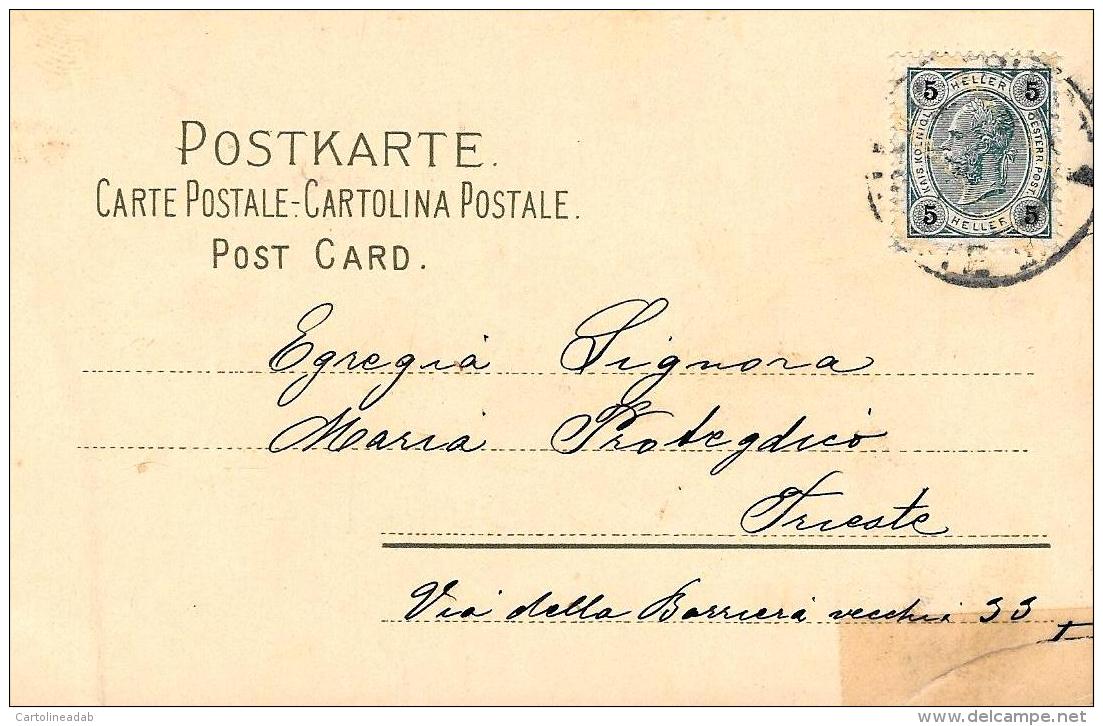 POSTKARTE.
CARTE POSTALE-CARTOLINA POSTALE.
POST CARD.
5 HELLER 5
KAIS. KÖNIGL. OESTERR. POST.
5 HELLER 5
Egregia Signora
Maria
Trieste
Via della Barriera vecchia 33
I
Cartolineadab
www.delcampe.net